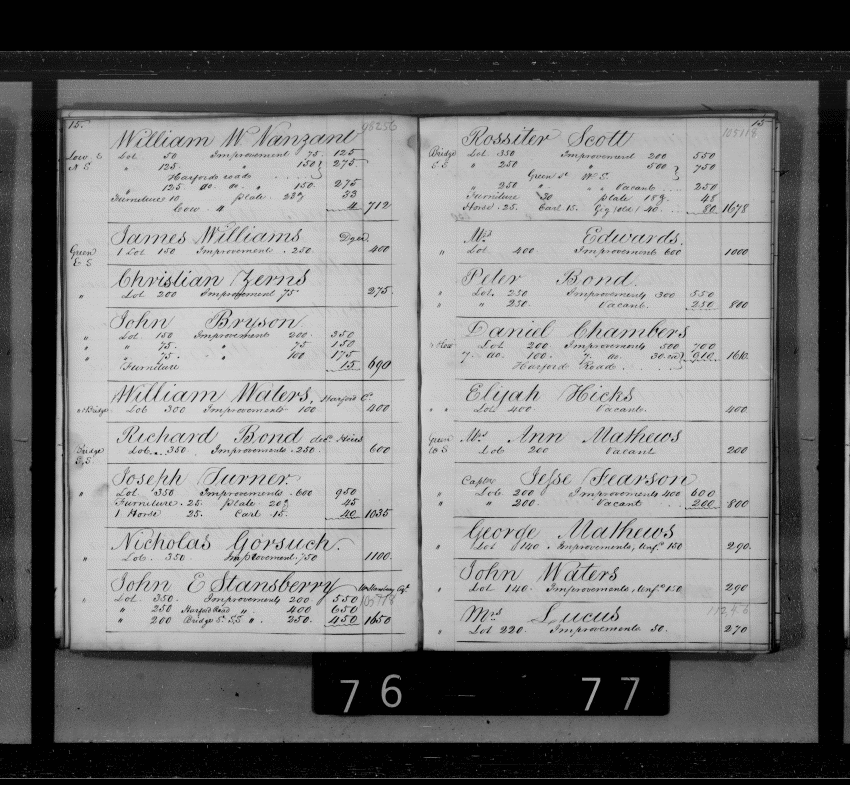 15. 95256
William W Vanzant
Low E Lot 50 Improvement 75 125
N S " 125 " 150 } 275
Harfords roads
" 125 do. do. " 150. 275
Furniture 10 plate 33
Cow " 4 712
James Williams Dyer
1 Lot 150 Improvements 250. 400
Green
E S
Christian Zerns
" Lot 200 Improvement 75 275.
John Bryson
" Lot 150 Improvements 200. 350
" " 75. " 75 150
" " 75. " 100 175
Furniture 15 690
William Waters, Harford Co.
" Bridge Lot 300 Improvements 100 400
Richard Bond decd. Heirs
Bridge Lot. 350. Improvements 250. 600
E, S
Joseph Turner.
" Lot 350 Improvements 600 950
Furniture 25. plate 45
1 Horse 25. Cart 15. 40 1035
Nicholas Gorsuch.
" Lot. 350. Improvement 750 1100.
John E Stansberry
" Lot. 350. Improvements 200 550
" " 250 Harford Road " 400 650
" " 200 Bridge St. " 250. 450 1650
15
105118
Rossiter Scott
Bridge Lot 350 Improvement 200 550
E S " 250 " 500 } 750
Green St W S.
" 250 " " " Vacant 250
Furniture 30 plate 48
Horse 25. Cart 15. Gig (old) 40. 80 1678
Mrs Edwards.
" Lot 400. Improvements 600 1000
Peter Bond
" Lot. 250 Improvements 300 550
" " 250. Vacant. 250 800
Daniel Chambers
Lot 200 Improvements 500 700
100. 910 1610.
Harford Road
Elijah Hicks
" " Lot 400. Vacant. 400.
Green Mrs Ann Mathews
W S Lot 200 Vacant 200
Captn Jesse Fearson
" Lot 200 Improvements 400 600
" 200 Vacant 200 800
George Mathews
" Lot 140. Improvements, unf. 150 290.
John Waters
" Lot 140. Improvements, unf. 150 290
Mrs Lucus
" Lot 220. Improvements 50. 270
76 77